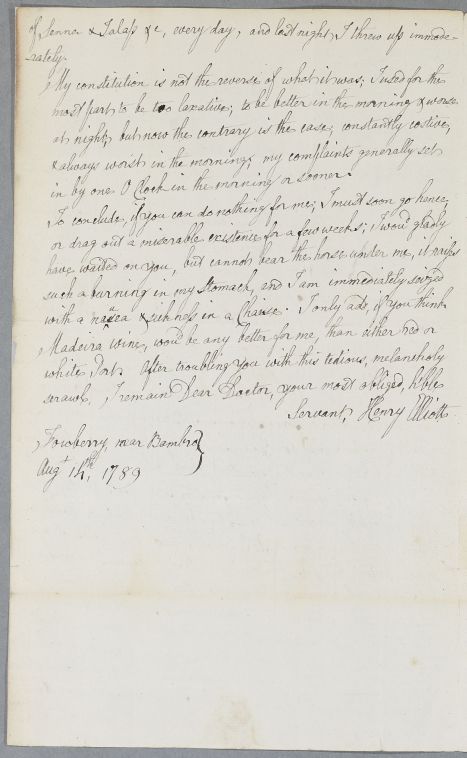 of Senna & Jalap &c, every day, and last night, I threw up immode-
rately.
My constitution is not the reverse of what it was; I used for the
most part to be too laxative; to be better in the morning & worse
at night; but now the contrary is the case; constantly costive,
& always worst in the morning; my complaints generally set
in by one O'Clock in the morning or sooner.
To conclude, if you can do nothing for me, I must soon go hence,
or drag out a miserable existence for a few weeks; I wou'd gladly
have waited on you, but cannot bear the horse under me, it raises
such a burning in my Stomach, and I am immediately seized
with a nausea & sickness in a Chaise. I only add, if you think
Madeira wine, wou'd be any better for me, than either red or
white Port. After troubling you with this tedious, melancholy
scrawl, I remain Dear Doctor, your most obliged, hble
Servant, Henry Elliott.
Fowberry, near Bambro
Augt 14th, 1789